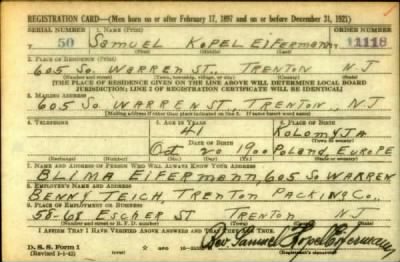 REGISTRATION CARD—(Men born on or after February 17, 1897 and on or before December 31, 1921)
SERIAL NUMBER 1. NAME (Print) ORDER NUMBER
T 50 SAMUEL KOPEL EIFERMANN 11118
(First) (Middle) (Last)
2. PLACE OF RESIDENCE (Print)
605 SO. WARREN ST., TRENTON N J
(Number and street) (Town, township, village, or city) (County) (State)
[THE PLACE OF RESIDENCE GIVEN ON THE LINE ABOVE WILL DETERMINE LOCAL BOARD
JURISDICTION; LINE 2 OF REGISTRATION CERTIFICATE WILL BE IDENTICAL]
3. MAILING ADDRESS
605 SO. WARREN ST., TRENTON, N J
(Mailing address if other than place indicated on line 2. If same insert word same)
4. TELEPHONE 5. AGE IN YEARS 6. PLACE OF BIRTH
41 KOLOMYJA
DATE OF BIRTH (Town or county)
OCT 20 1900 POLAND EUROPE
(Exchange) (Number) (Mo.) (Day) (Yr.) (State or country)
7. NAME AND ADDRESS OF PERSON WHO WILL ALWAYS KNOW YOUR ADDRESS
BLIMA EIFERMANN, 605 SO WARREN
8. EMPLOYER'S NAME AND ADDRESS
BENNY TEICH, TRENTON PACKING CO.,
9. PLACE OF EMPLOYMENT OR BUSINESS
58-68 ESCHER ST TRENTON N J
(Number and street or R. F. D. number) (Town) (County) (State)
I AFFIRM THAT I HAVE VERIFIED ABOVE ANSWERS AND THAT THEY ARE TRUE.
D. S. S. Form 1
(Revised 1-1-42) Rev. Samuel Kopel Eifermann